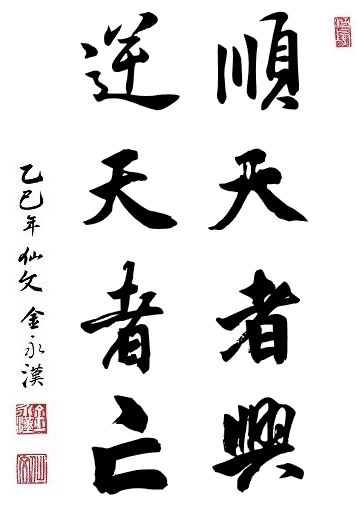 順天者興
逆天者亡
乙巳年 仙文 金永漢